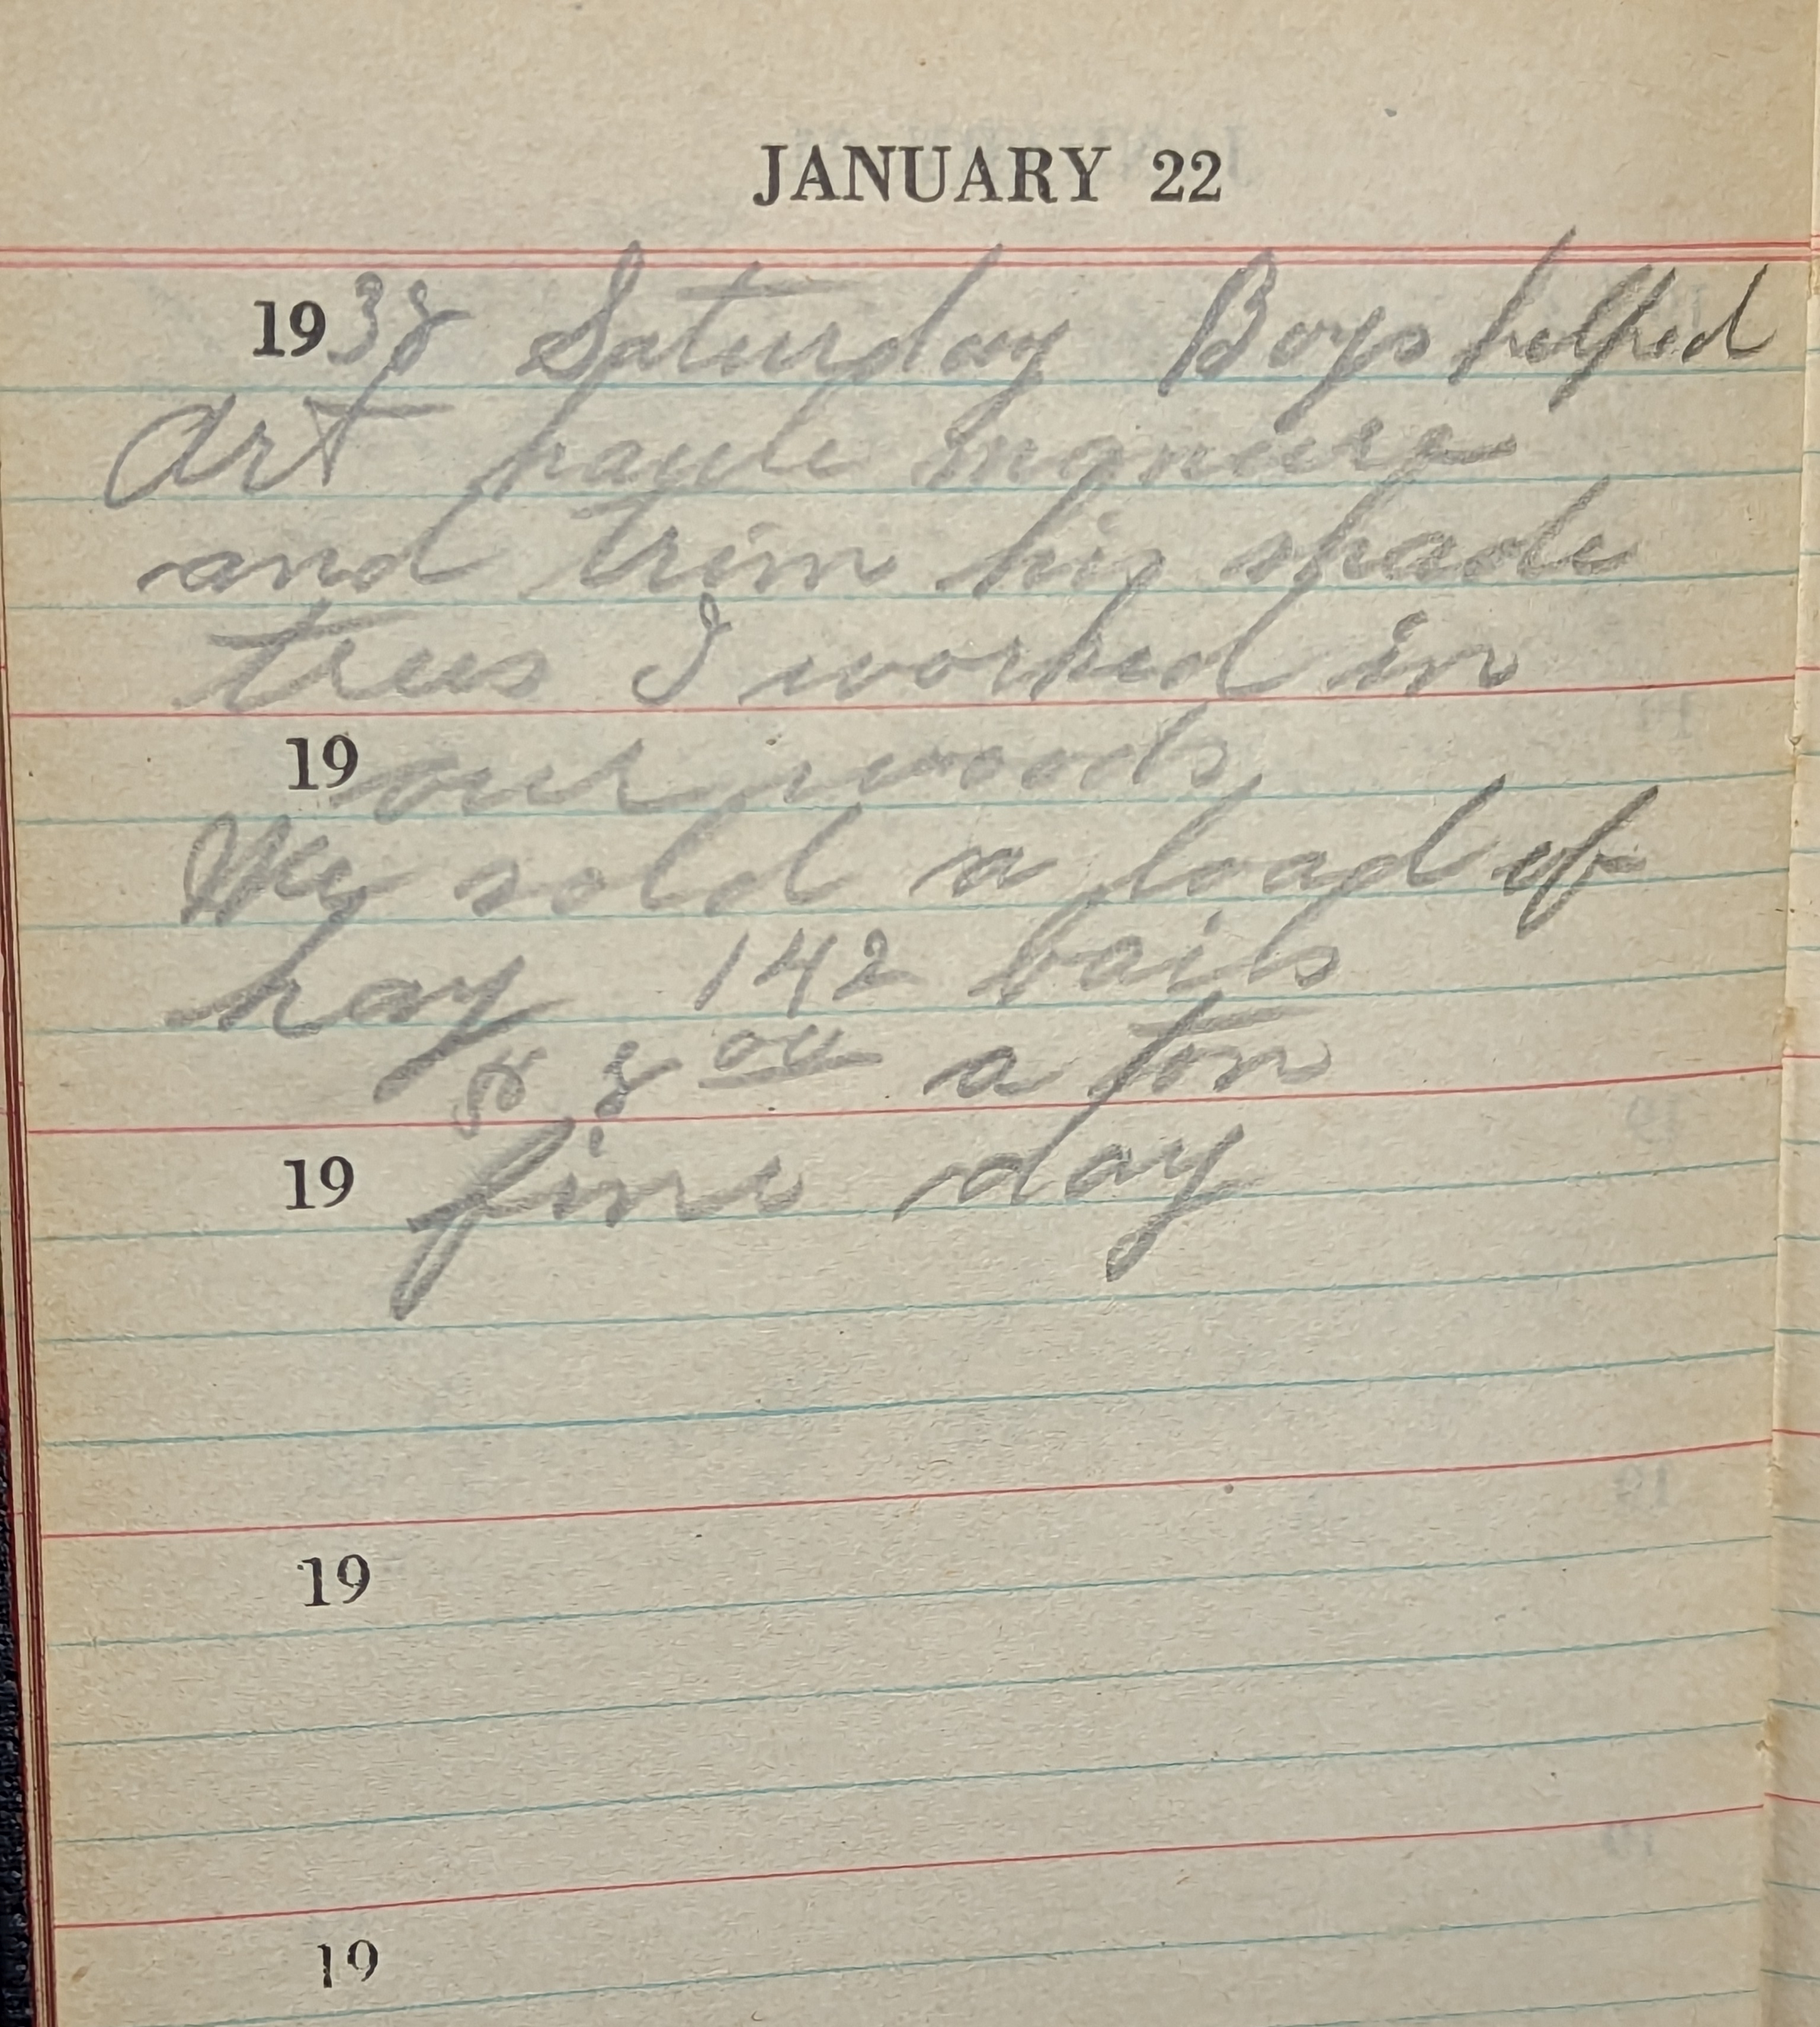 JANUARY 22
1938 Saturday Boys helped
Art haule manure
and trim his shade
trees I worked in
19 our woods
We sold a load of
hay 142 bails
$8 00 a ton
19 fine day
19
19